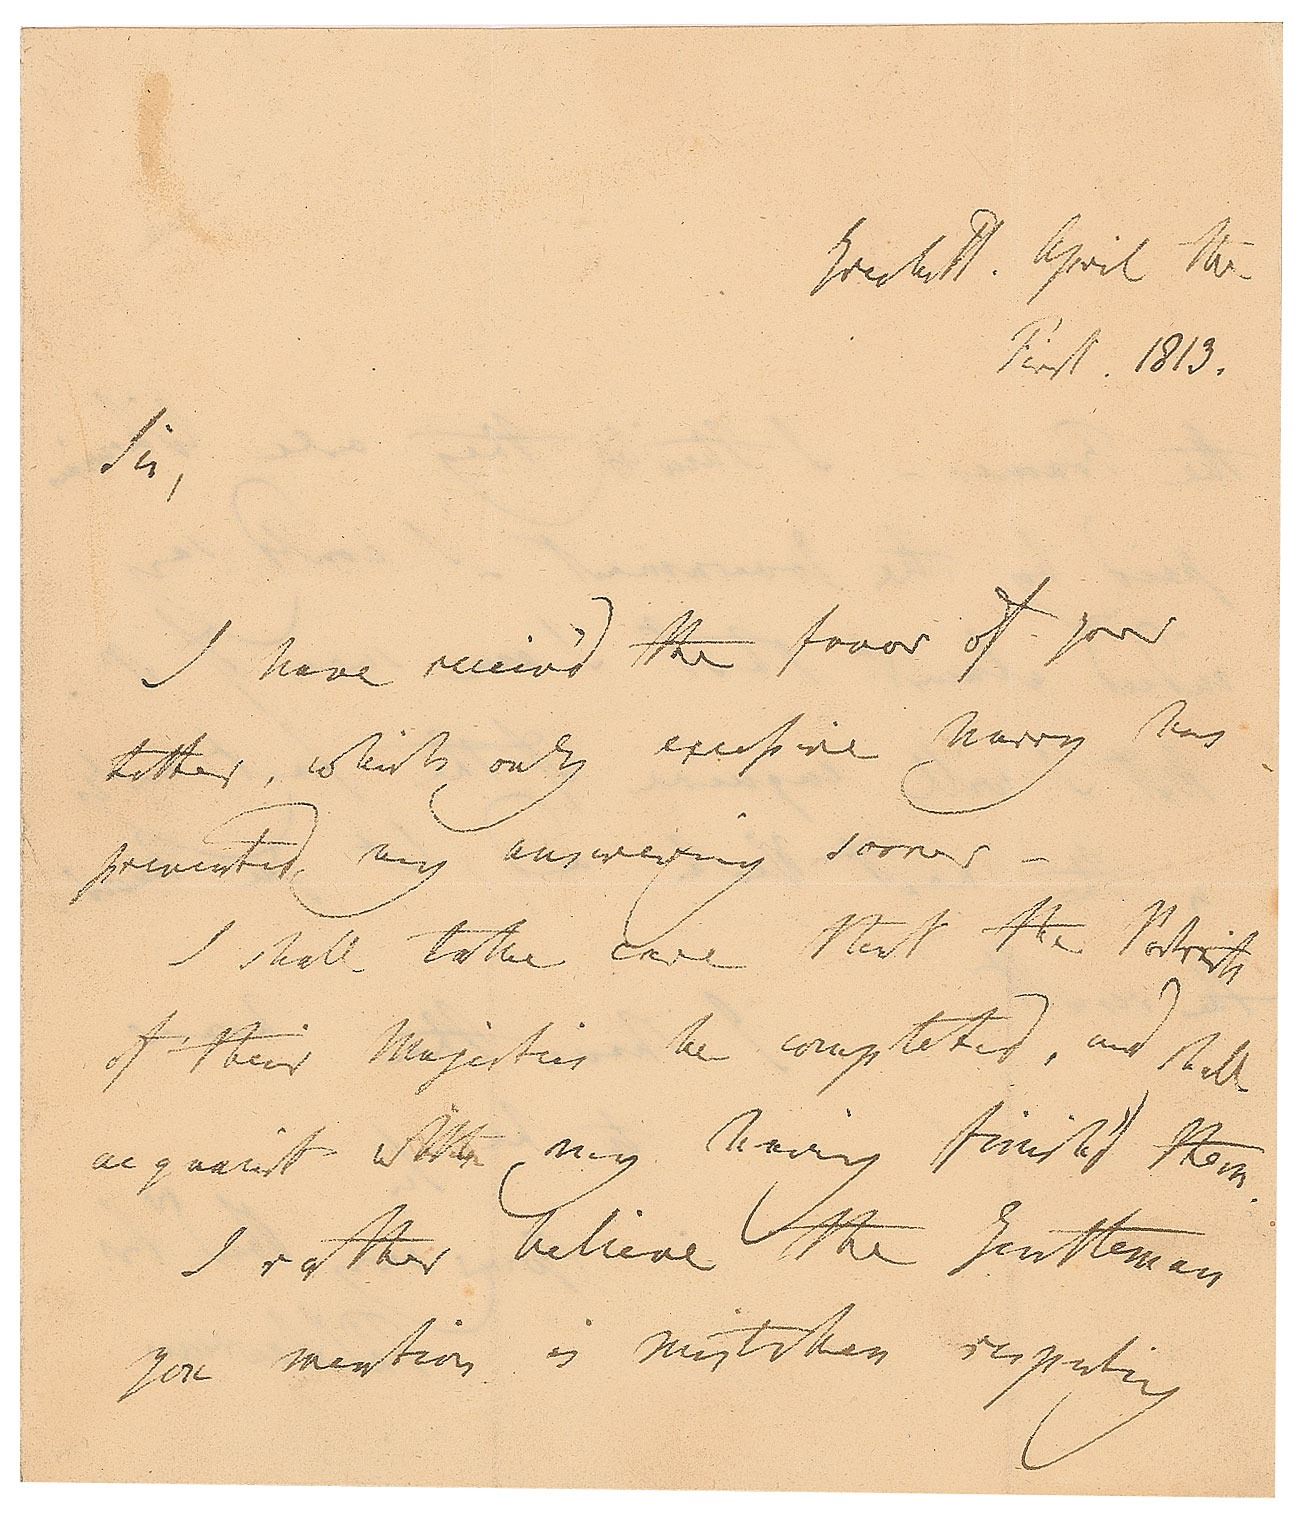 Greek St. April the
First. 1813.
Sir,
I have receiv'd the favor of your
letter, which only excessive hurry has
prevented my answering sooner –
I shall take care that the Portraits
of their Majesties be completed, and shall
acquaint my having finish'd them.
I rather believe the Gentleman
you mention is mistaken respecting